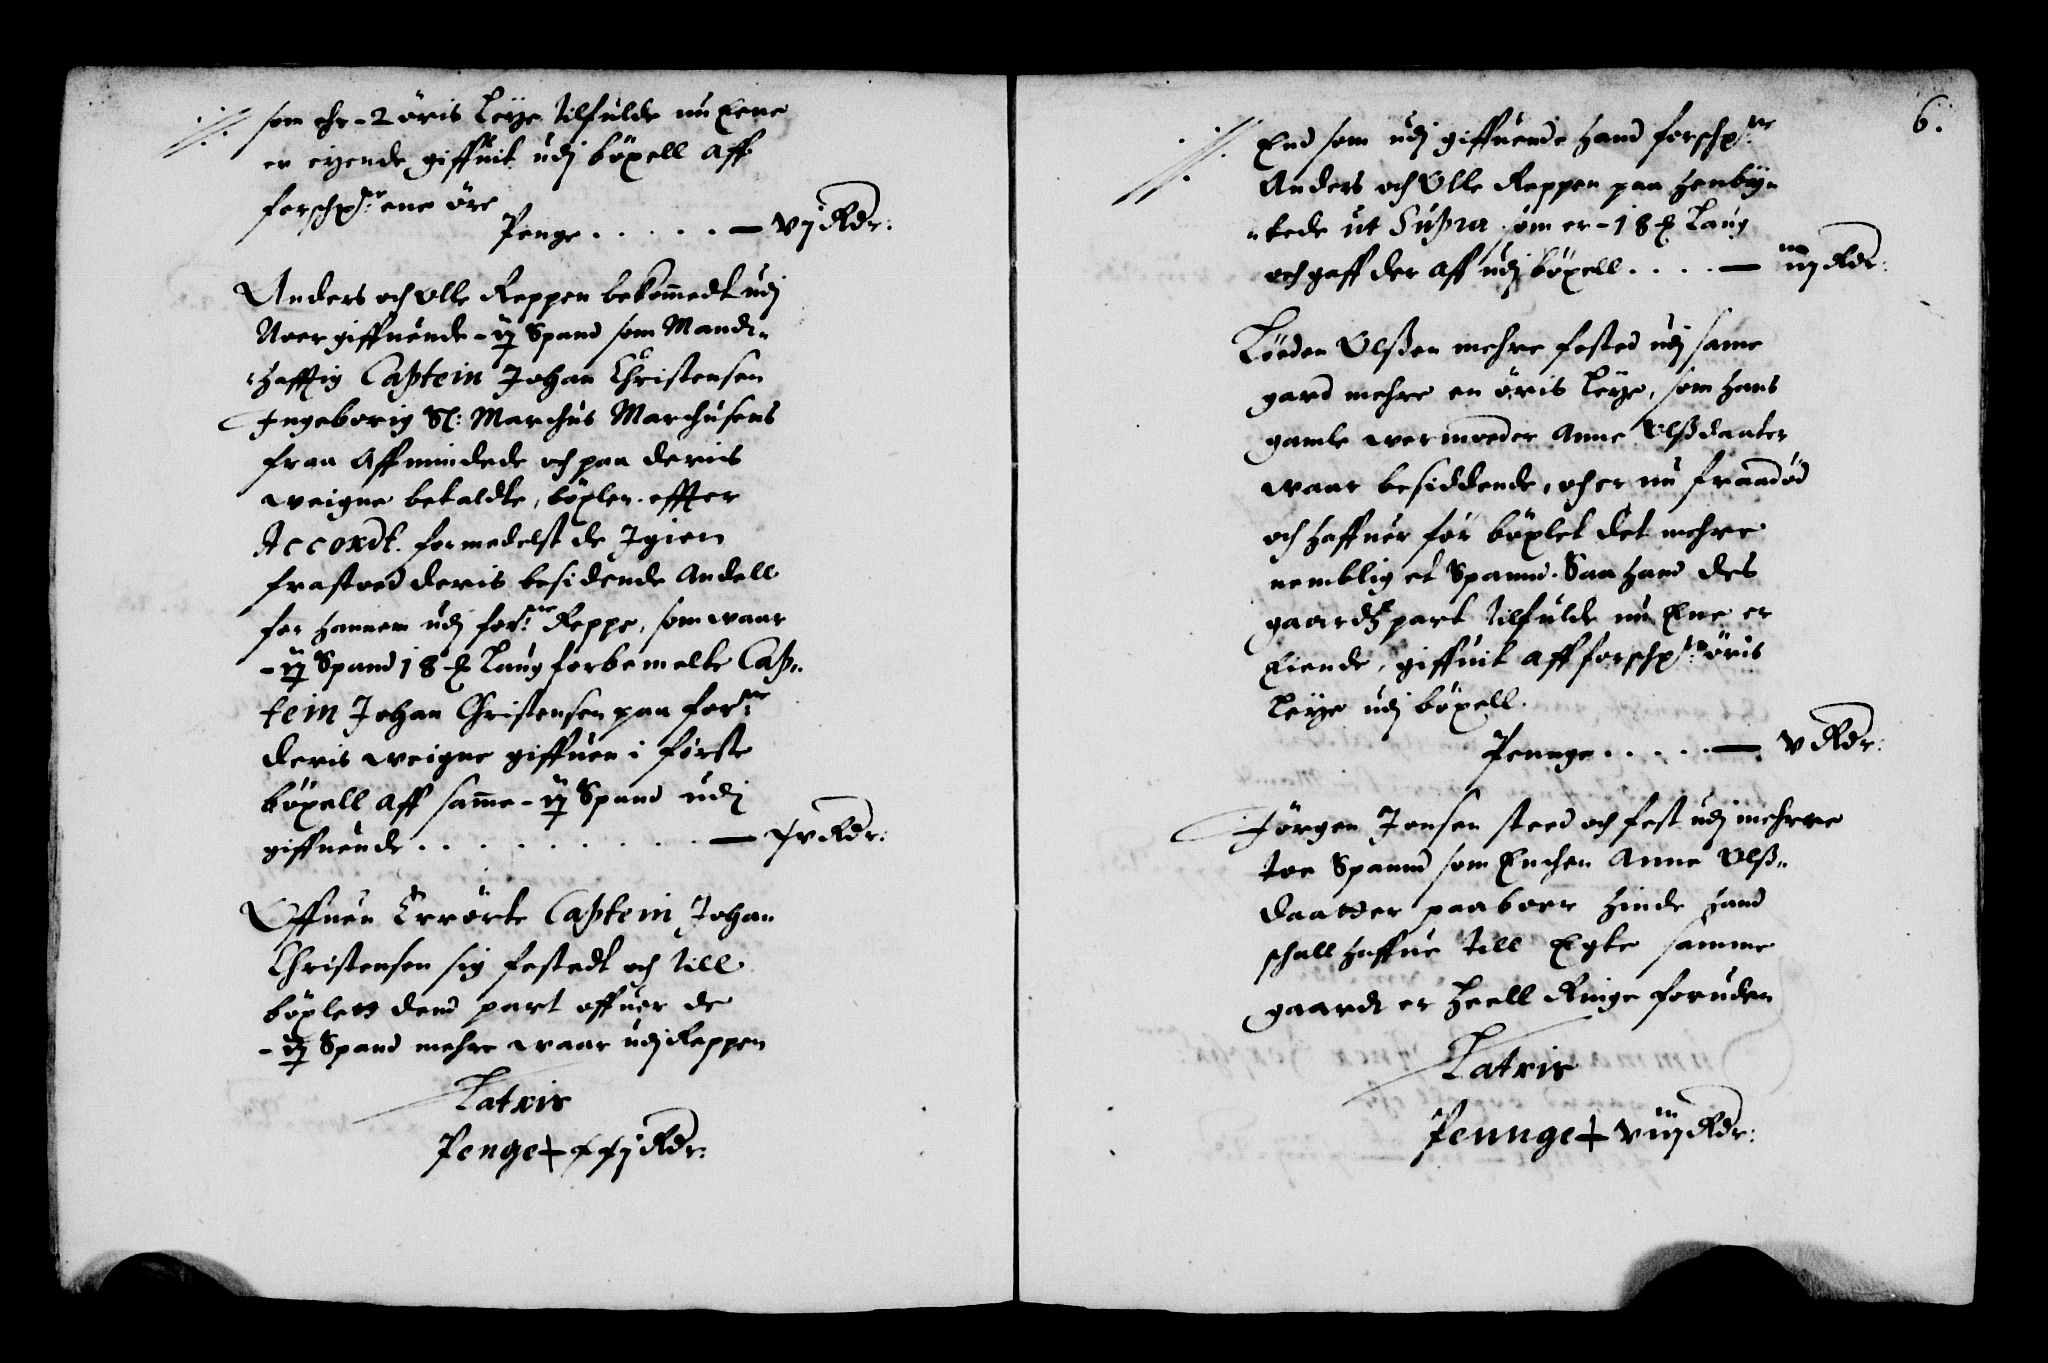 som ehr - 2 öris Leye tilfulde nu Eene
er eyende giffuit udj böxell aff
forschr:ne ene öre
Penge . . . . . — vj Rdr:
Anders och Olle Reppen bekommedt udj
Noer giffuende - ij Spand som Mand-
hafftig Captein Johan Christensen
Ingeborig Sl: Marchus Marchusens
fraa Affmindede och paa deris
weigne betaldte, böxlen effter
Accordt. formedelst de Igien
frastoed deris besidende Andell
for hannem udj for:ne Reppe, som waar
- ij Spand 18 # Laug forbemelte Cap-
tein Johan Christensen paa for:ne
deris weigne giffuen i förste
böxell aff samme - ij Spand udj
giffuende . . . . . . . . . — xv Rdr:
Offuen Errörte Captein Johan
Christensen sig festedt och till
böxlett dend part offuer de
- ij Spand mehre waar udj Reppen
Latris
Penge + xxj Rdr:
6.
End som udj giffuende hand forschr:ne
Anders och Olle Reppen paa
ut Supra om er - 18 # Laug
och gaff der aff udj böxell . . . . — iij Rdr:
Loeden Olßen mehre fested udj same
gard mehre en öris Leye, som hans
gamle wermoeder Anne Olßdaater
waar besiddende, och er nu fraadöd
och haffuer för böxlet det mehre
nemblig et Spannd. Saa hand des
gaardtz part tilfulde nu Ene er
Eiende, giffuit aff forschr:ne öris
Leye udj böxell.
Pennge . . . . . — v Rdr:
Jörgen Jonsen sted och fest udj mehrre
toe Spannd som Enchen Anne Olß-
daatter paaboer hinde hand
schall haffue till Egte samme
gaardt er heell Ringe foruden
Latris
Pennge + viij Rdr: